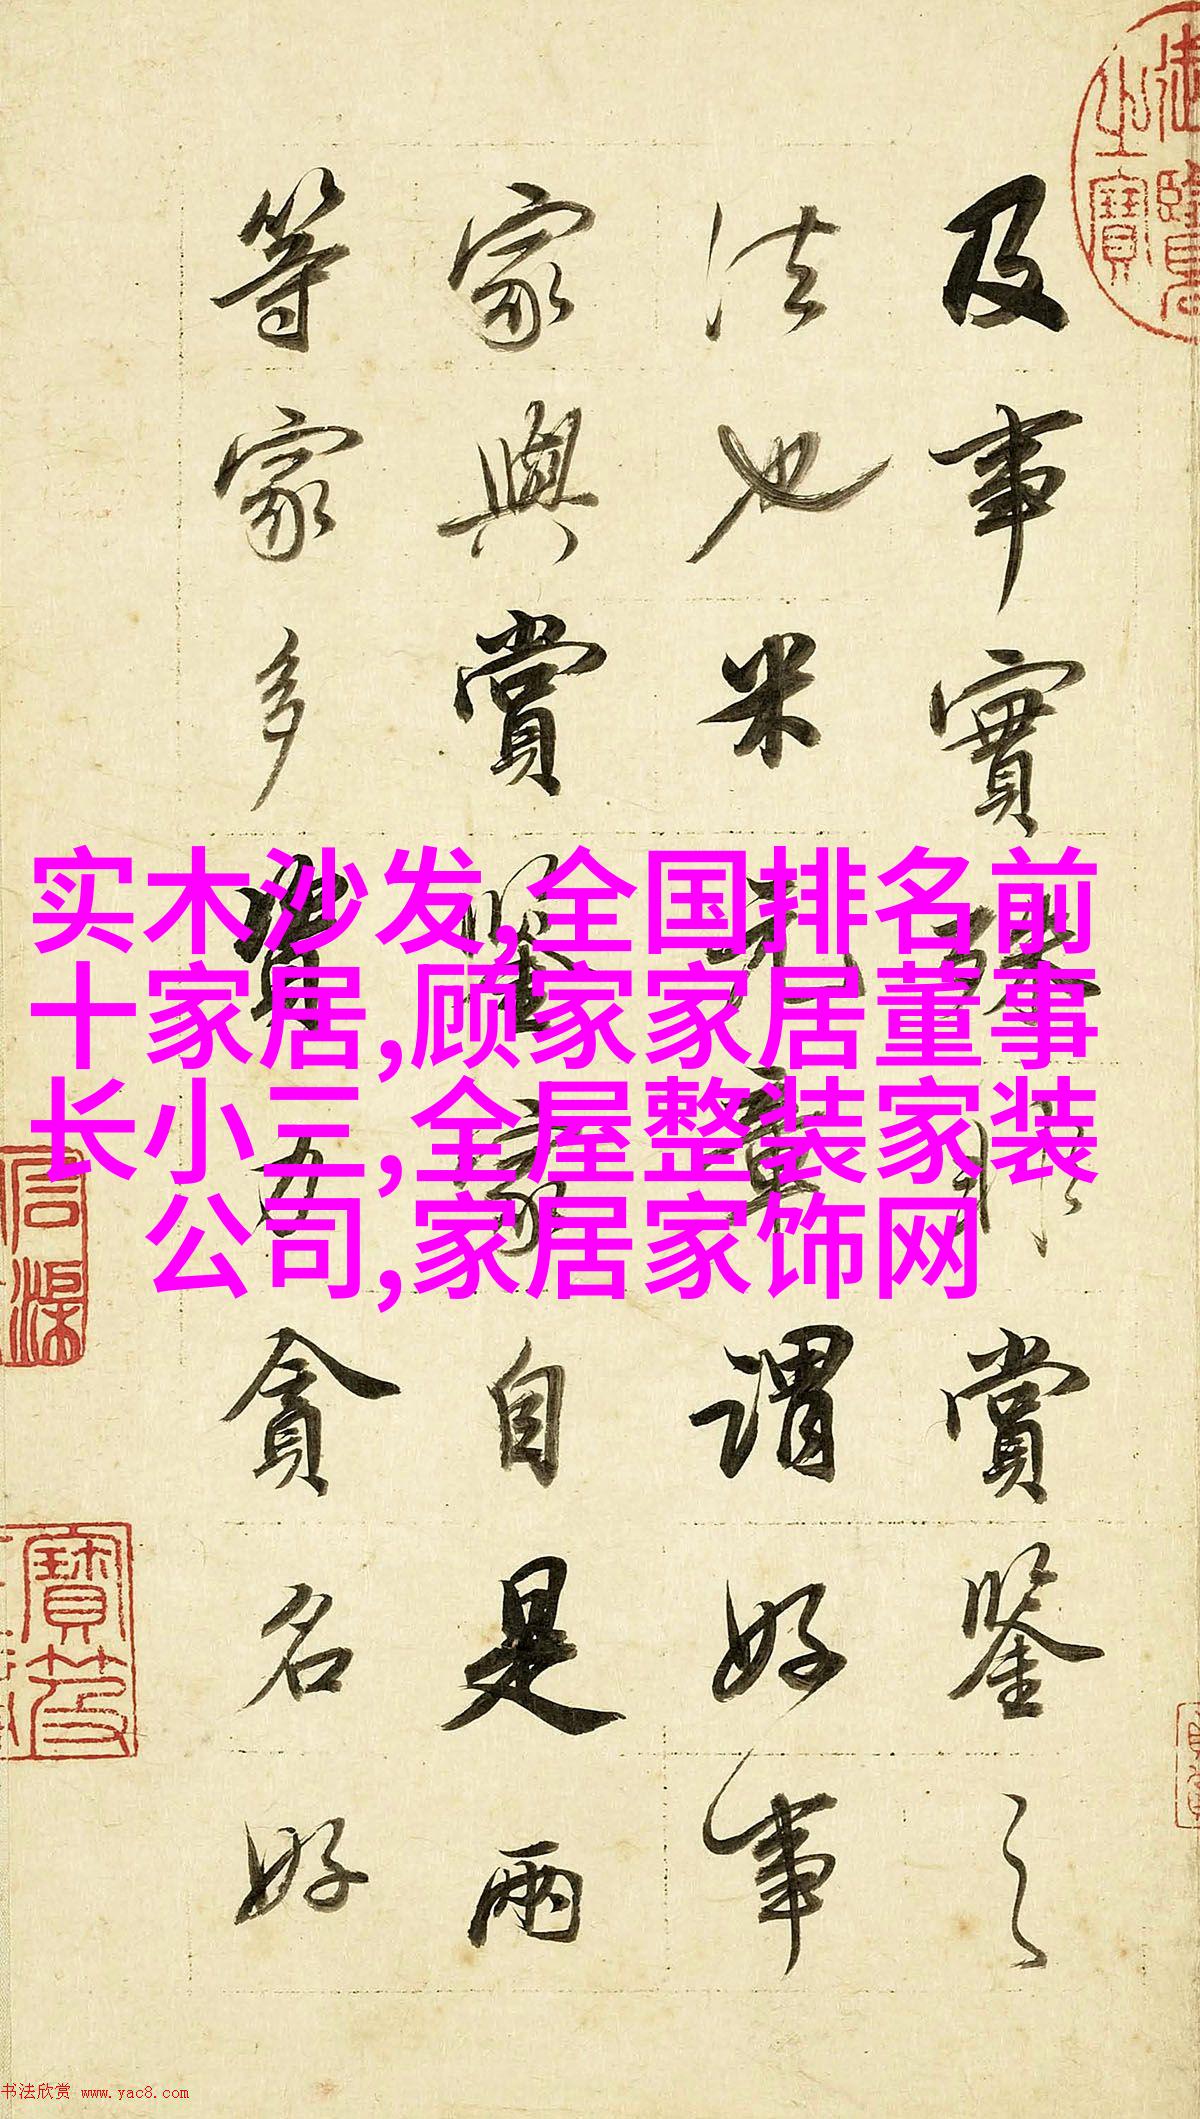 御覽
之寶
及事實賞鑒之
法也米元章謂好事
家與賞鑒家自是兩
等家多資力貪名好
实木沙发,全国排名前
十家居,顾家家居董事
长小三,全屋整装家装
公司,家居家饰网
书法欣赏 www.yac8.com